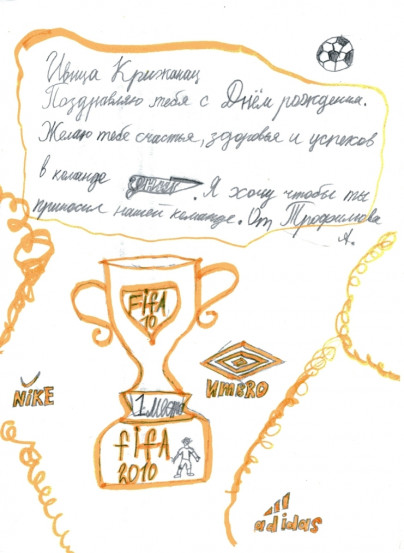 Ивица Крижанац
Поздравляю тебя с Днём рождения.
Желаю тебе счастья, здоровья и успехов
в команде . Я хочу чтобы ты
приносил нашей команде. От Трофимова
А.
FifA
10
NiKE
UMBRO
1 место
fifA
2010
adidas